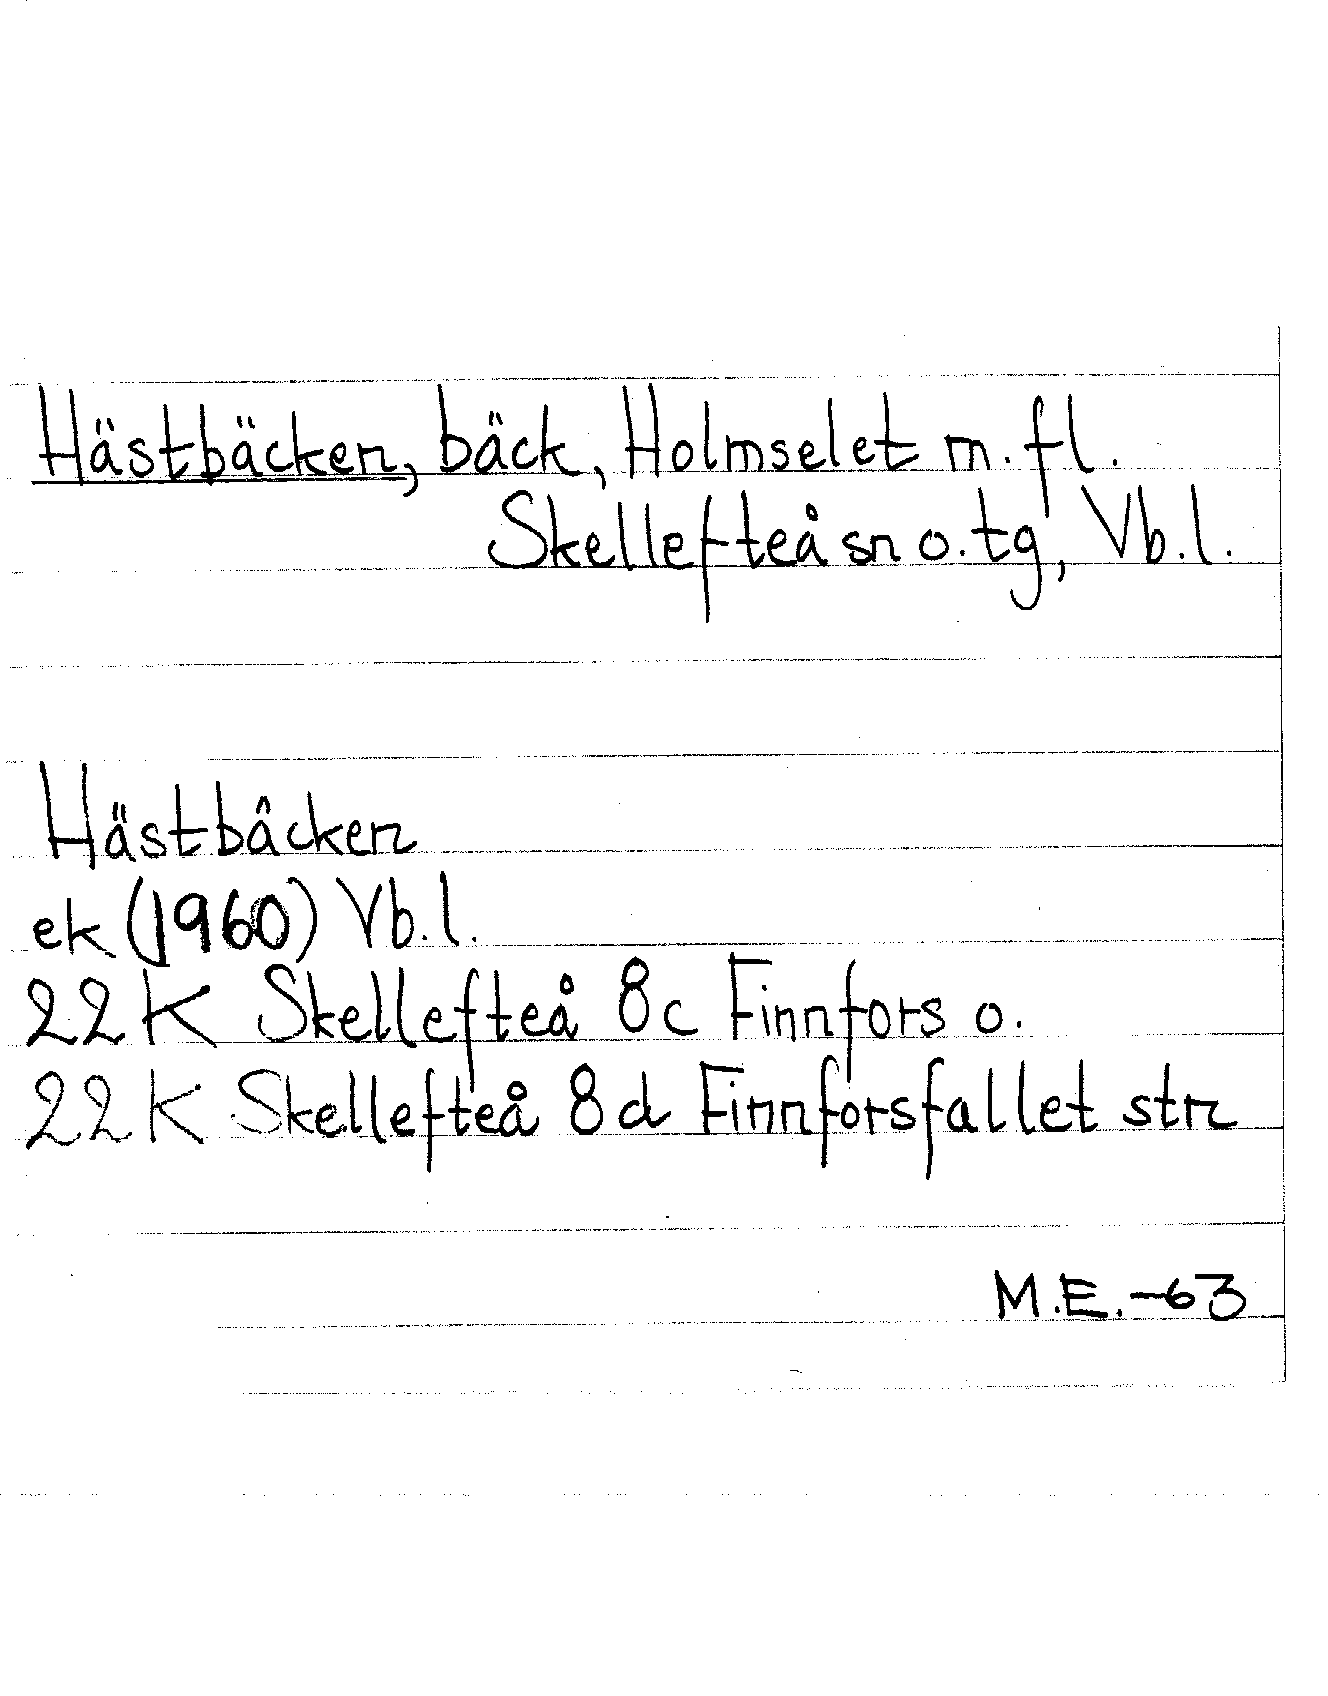 Hästbäcken, bäck, Holmselet m. fl.
Skellefteå sn o. tg, Vb.l.
Hästbäcken
ek (1960) Vb.l.
22K Skellefteå 8c Finnfors o.
22K Skellefteå 8d Finnforsfallet str
M.E.-63